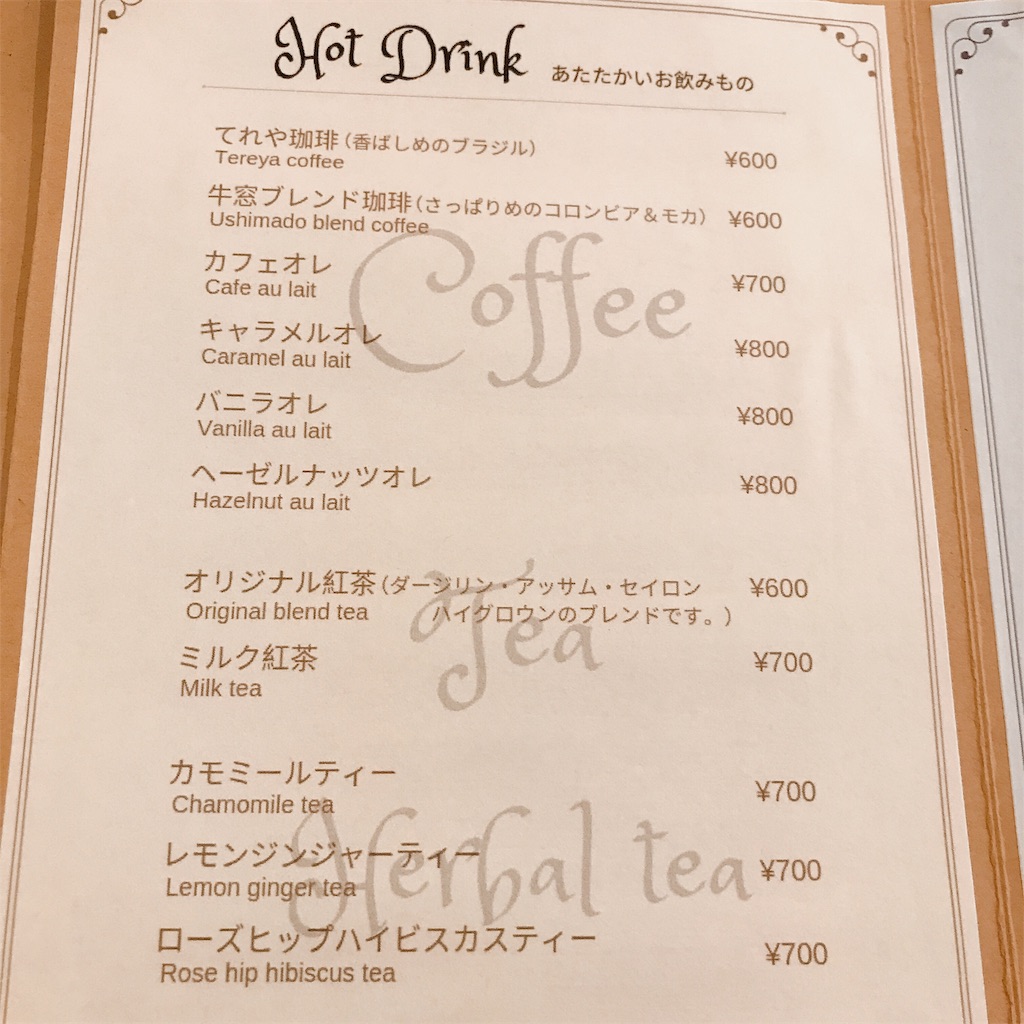 Hot Drink あたたかいお飲みもの
てれや珈琲（香ばしめのブラジル） ¥600
Tereya coffee
牛窓ブレンド珈琲（さっぱりめのコロンビア＆モカ） ¥600
Ushimado blend coffee
Coffee
カフェオレ ¥700
Cafe au lait
キャラメルオレ ¥800
Caramel au lait
バニラオレ ¥800
Vanilla au lait
ヘーゼルナッツオレ ¥800
Hazelnut au lait
Tea
オリジナル紅茶（ダージリン・アッサム・セイロン ¥600
Original blend tea ハイグロウンのブレンドです。）
ミルク紅茶 ¥700
Milk tea
Herbal tea
カモミールティー ¥700
Chamomile tea
レモンジンジャーティー ¥700
Lemon ginger tea
ローズヒップハイビスカスティー ¥700
Rose hip hibiscus tea